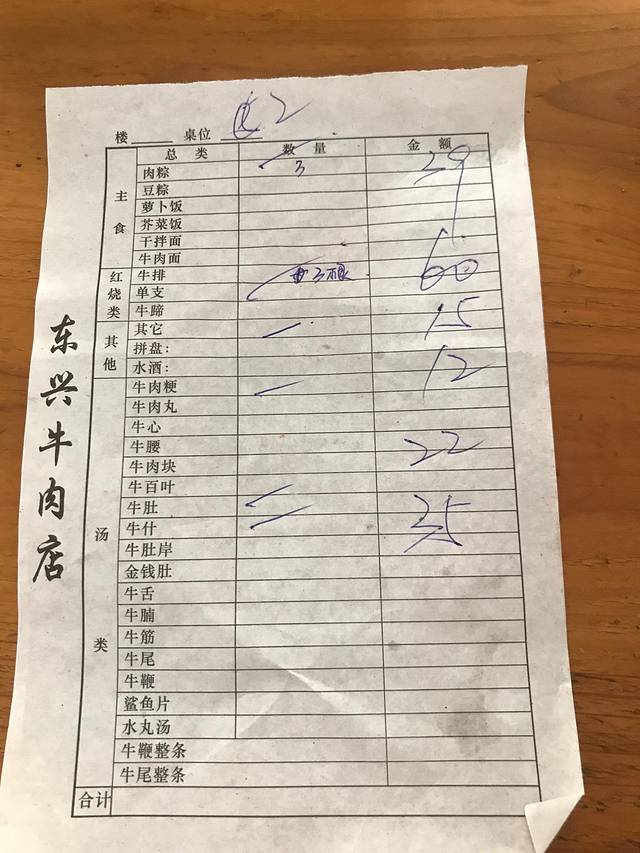 楼 桌位 2
总类 数量 金额
主食
肉粽 3 29
豆粽
萝卜饭
芥菜饭
干拌面
牛肉面
红烧类
牛排 60
单支
牛蹄
其他
其它 15
拼盘：
水酒： 12
汤类
牛肉粳
牛肉丸
牛心
牛腰 22
牛肉块
牛百叶
牛肚
牛什 35
牛肚岸
金钱肚
牛舌
牛腩
牛筋
牛尾
牛鞭
鲨鱼片
水丸汤
牛鞭整条
牛尾整条
合计
东兴牛肉店